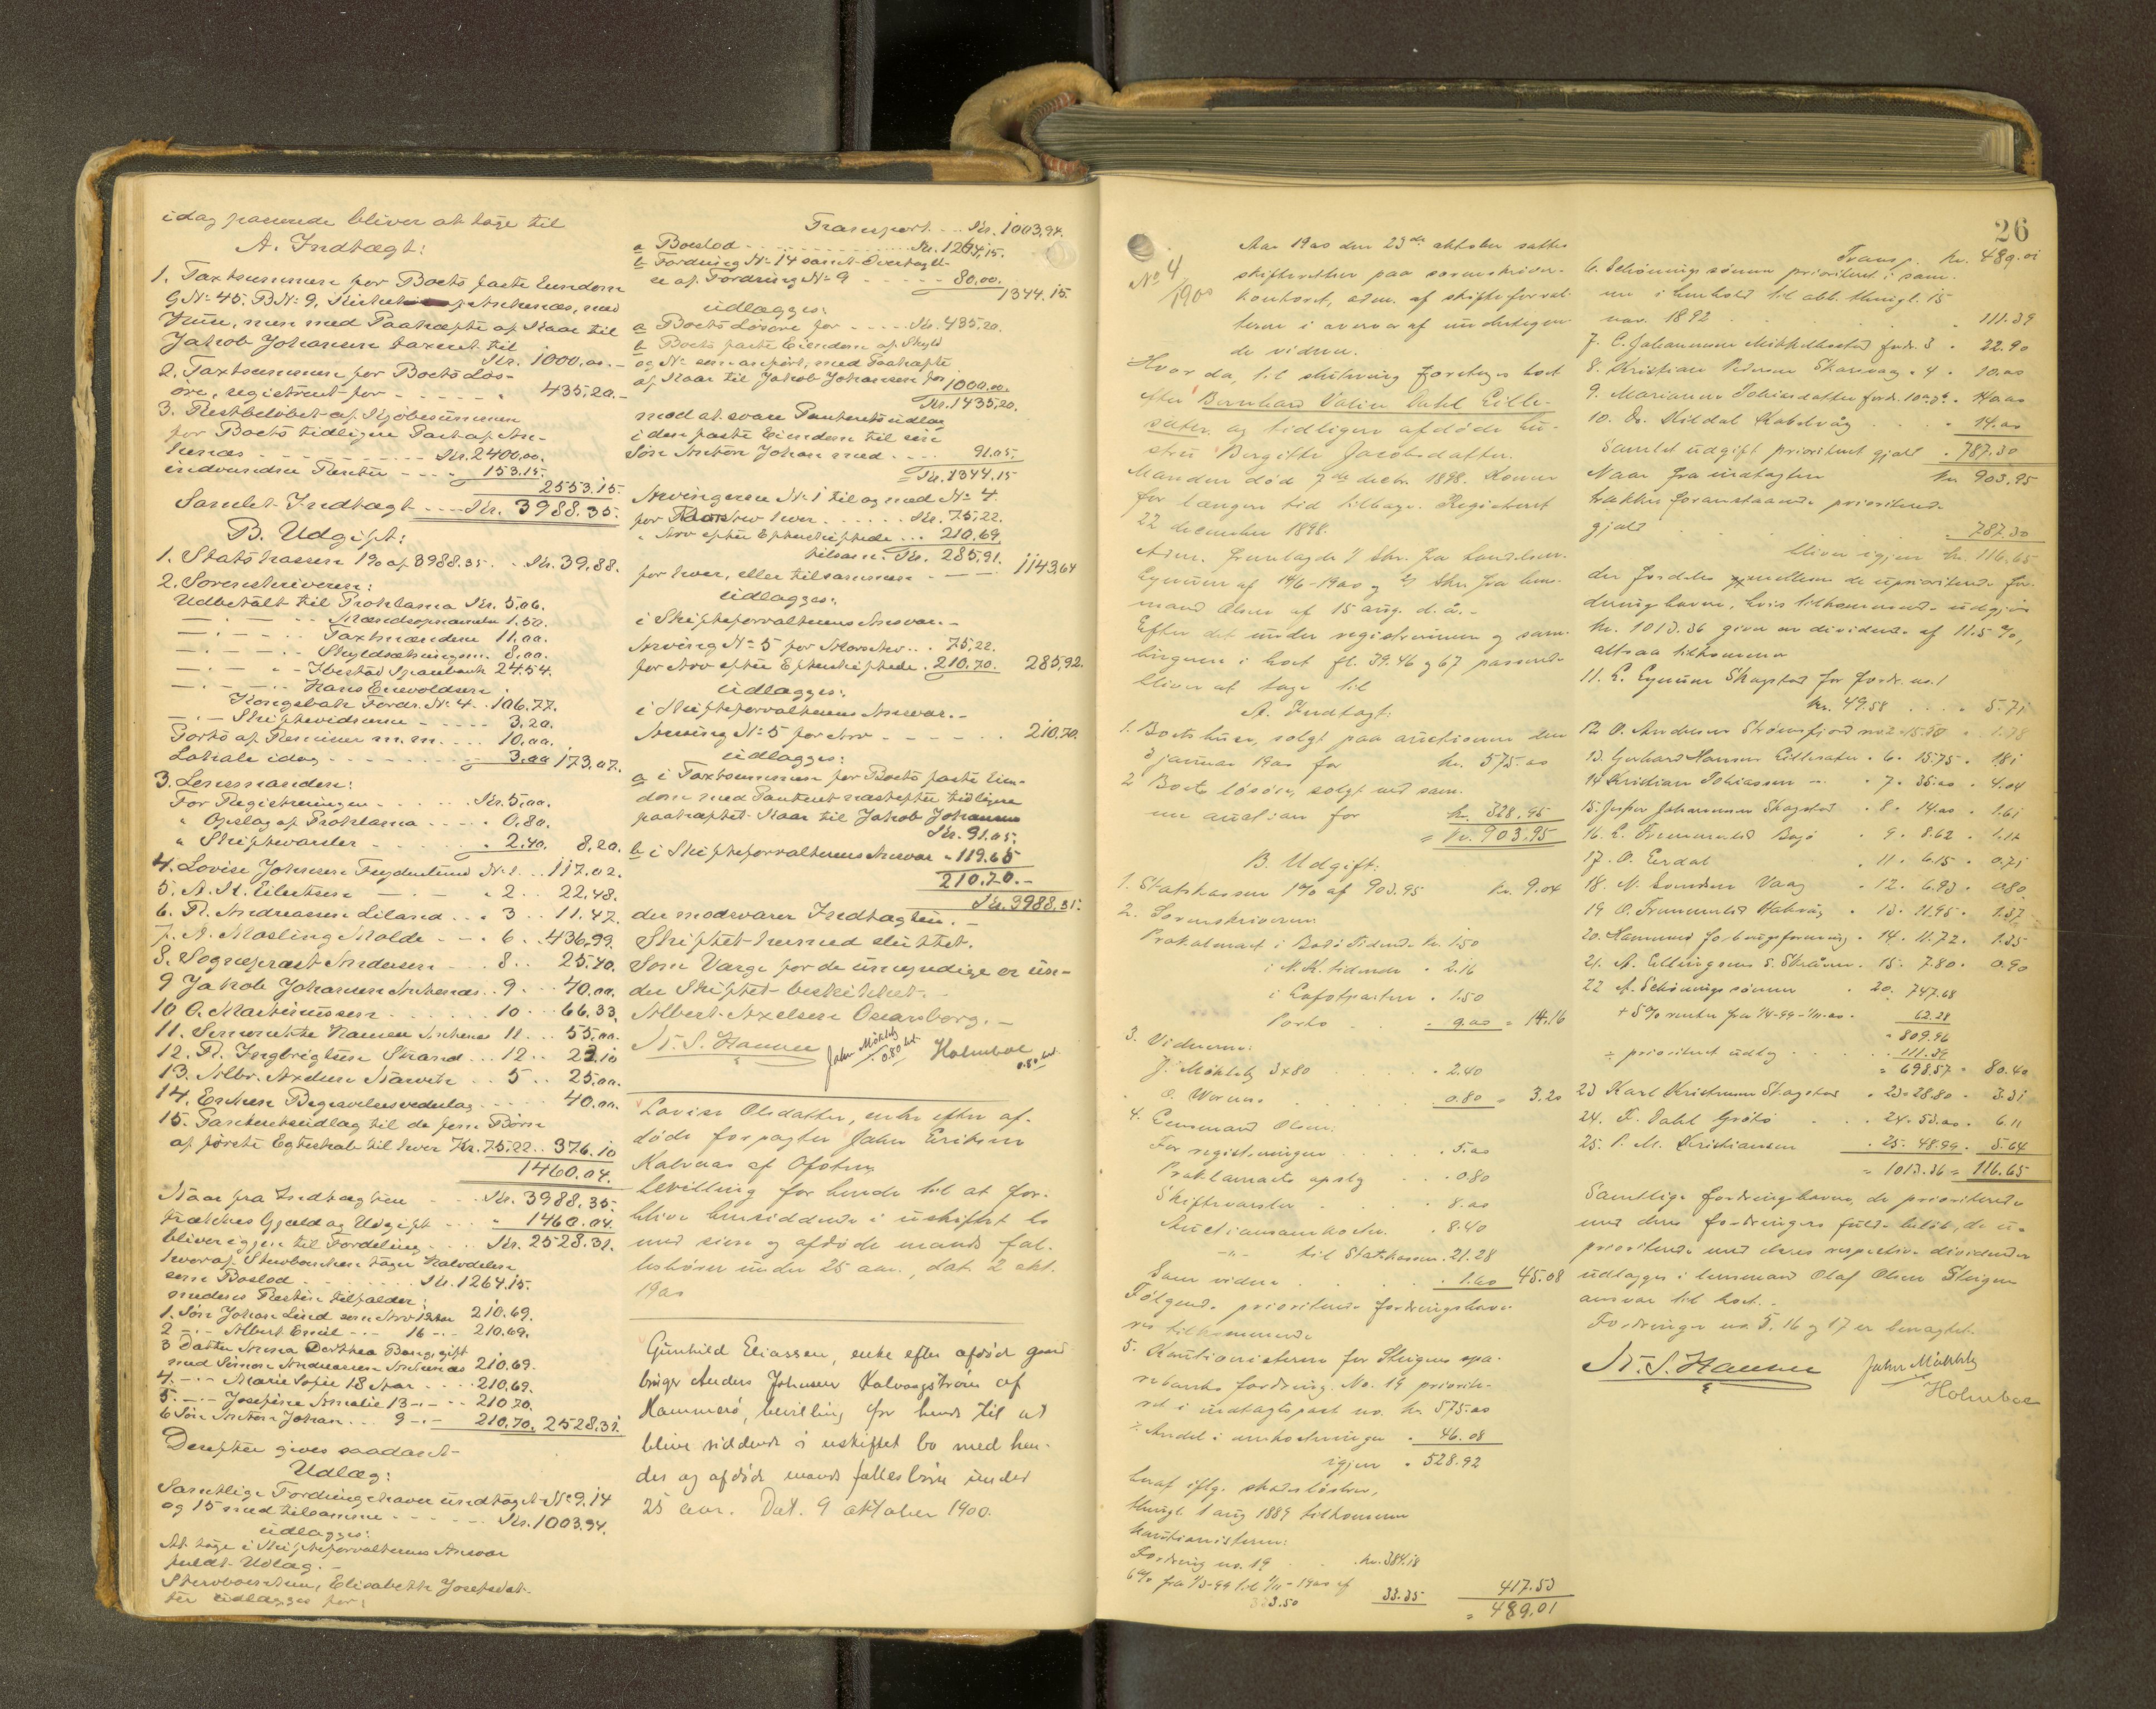 idag passerede bliver at tage til
A. Indtægt:
1. Taxtsummen for Boets faste Eiendom
G.Nº 45. B.Nº 9. af Ankenæs, med
Huse, men med Paahæfte af Kaar til
Jakob Johansen taxeret til
Kr. 1000,00.-
2. Taxtsummen for Boets Løs-
øre, registreret for - - - - - - 435,20.-
3. Restbeløbet af Kjøbesummen
for Boets tidligere Part af An-
kenæs - - - - - Kr. 2400,00.
indvundne Renter - - - 153.15.
2553.15.
Samlet Indtægt - - - Kr. 3988.35.
B. Udgift:
1. Statskassen 1% af 3988.35. - Kr. 39,88.
2. Sorenskriveren:
Udbetalt til Proklama Kr. 5,06.
— . — - - 1.50.
— . — - - Taxtmændene 11,00.
— . — - - 8,00.
— . — - - Ibestad Sparebank 24.54.
— . — - - Hans Enevoldsen
Kongsbak Fordr. Nº 4 . 106.77.
— . — Skiftevidnerne - - - - 3,20.
Porto af Remisser m.m. - - - 10,00.
Lokale idag - - - - - - - 3.00 173,07.
3. Lensmanden:
For Registreringen - - - - Kr. 5,00.
" Opslag af Proklama - - - - 0.80.
" Skiftevarsler - - - - - - 2,40. 8,20.
4. Lovise Johnsen Frydenlund Nº 1 . . 117.02.
5. A. M. Eilertsen — . — " 2 . . 22,48.
6. R. Andreassen Liland . . . 3 . . 11.47.
7. A. Masling Molde - - . 6 . . 436,99.
8. Sogneprest Andersen - - 8 . . 25.40.
9 Jakob Johansen Ankenæs . . 9 . . . 40,00.
10 O. Martinussen - - - - - - 10 . . . 66,33.
11. Hansen Ankenes 11 . . . 55,00.
12. R. Ingbrigtsen Strand . . . 12 . . 23.10
13. Albr. Axelsen Narvik . . 5 . . 25,00.
14. Enkens Begravelsesvederlag - - - - 40.00.
15. Panteretsudlag til de fem Børn
af første Egteskab til hver Kr. 75,22. . 376.10
1460.04.
Naar fra Indtægten - - . Kr. 3988,35.
trækkes Gjæld og Udgift - - - " 1460.04.
bliver igjen til Fordeling - - - Kr. 2528.31.
hvoraf Stervboenken tager Halvdelen
som Boslod - - - - - - - Kr. 1264.15.
medens Resten tilfalder:
1. Søn Johan Lind som Arv 19 Aar 210.69.
2 — . — Albert Emil — . — 16 — . — 210.69.
3 Datter Anna Dorthea Bang, gift
med Simon Andreassen Ankenæs 210.69.
4. — . — Marie Sofie 18 Aar - - - - 210,69.
5. — . — Josefine Amalie 13 — . — - - 210 70.
6 Søn Anton Johan . . . 9 — . — 210.70. 2528.31.
Derefter gives saadant
Udlæg:
Samtlige Fordringshavere undtaget Nº 9. 14
og 15 med tilsammen - - - - - - Kr. 1003.94.
udlægges:
At tage i Skifteforvalterens Ansvar
fuldt Udlæg. —
Stervboenken, Elisabeth Josefsdat-
ter udlægges for:
Transport - - - Kr. 1003,94.
a Boslod - - - - - - - - - - - Kr. 1264,15.
b Fordring Nº 14 samt Overtagel-
se af Fordring Nº 9 - - - - - 80,00.
1344.15.
udlægges:
a Boets Løsøre for - - - - Kr. 435,20.
b Boets faste Eiendom af Skyld
og Nº som anført, med Paahæfte
af Kaar til Jakob Johansen for 1000,00.
Kr. 1435,20.
mod at svare Panterets udlæg
i den faste Eiendom til sin
Søn Anton Johan med - - - - 91.05.
= Kr. 1344.15
Arvingerne Nº 1 til og med Nº 4.
for Morsarv hver - - - - - Kr. 75,22.
" Arv efter Efterskiftede . . . 210.69.
tilsam. Kr. 285,91.
for hver, eller tilsammen - - — - - 1143,64
udlægges:
i Skifteforvalterens Ansvar. —
Arving Nº 5 for Morsarv . . . 75,22.
for Arv efter Efterskiftede . 210,70. 285,92.
udlægges:
i Skifteforvalterens Ansvar. —
Arving Nº 5 for Arv - - - - - - . 210,70.
udlægges:
a i Taxtsummen for Boets faste Eien-
dom med Panteret næstefter tidligere
paahæftet Kaar til Jakob Johansen
Kr. 91.05.
b i Skifteforvalterens Ansvar " 119.65
210.70. —
Kr. 3988.35.
der modsvarer Indtægten. —
Skiftet hermed sluttet.
Som Værge for de umyndige er un-
der Skiftet beskikket. -
Albert Axelsen Oscarsborg. —
N. S. Hansen John Möhlty 0.80 bet. Holmboe 0.80 bet.
Lovise Olsdatter, enke efter af-
døde forpagter Johan Eriksen
Kalvaas af Ofoten
bevilling for hende til at for-
blive hensiddende i uskiftet bo
med sine og afdøde mands fæl-
lesbørn under 25 aar, dat. 2 okt.
1900
Gunhild Eliassen, enke efter afdøde gaard
bruger Anders Johnsen Kalvaagstrøm af
Hammerø, bevilling for hende til at
blive siddende i uskiftet bo med hen-
des og afdøde mands fællesbørn under
25 aar. Dat. 9 oktober 1900.
26
Nº 4/1900
Aar 1900 den 23de oktober sattes
skifteretten paa sorenskriver-
kontoret, adm. af skifteforval-
teren i overvær af undertegne-
de vidner.
Hvor da, til slutning foretoges boet
efter Bernhard Valin Dahl Eille-
sæter og tidligere afdøde hu-
stru Birgitte Jacobsdatter.
Manden død 9de decbr. 1898. Konen
for længere tid tilbage. Registreret
22 december 1898.
Adm. fremlagde 1/ Skr. fra handelsm.
Eynum af 14/6-1900 og 2/ Skr. fra lens-
mand Olsen af 15 aug. d. å. -
Efter det under registreringen og sam-
lingerne i boet fl. 39. 46 og 67 passerede
bliver at tage til
A. Indtægt:
1. Boets huse, solgt paa auctionen den
3 januar 1900 for kr. 575.00
2 Boets løsøre, solgt ved sam-
me auction for kr. 328.95
= kr. 903.95
B. Udgift:
1. Statskassen 1% af 903.95 kr. 9.04
2. Sorenskriveren:
Proklamaet i Bodø Tidende kr. 1.50
i N. K. tidende " 2.16
i Lofotposten " 1.50
Porto " 9.00 = 14.16
3. Vidnerne:
J. Möhlty 3x80 . . . . " 2.40
O. . . . 0.80 = 3.20
4. Lensmand Olsen:
For registreringen . . . . 5.00
Proklamaets opslag . . . . 0.80
Skiftevarsler . . . . 8.00
Auctionsomkostn. . 8.40
—"— til Statskassen . 21.28
Som vidne . . . . 1.60 45.08
Følgende prioriterede fordringshave-
res tilkommende
5. Kautionisterne for Steigens spa-
rebanks fordring No. 19 priorite-
ret i indtægtspost no. 1 kr. 575.00
÷ Andel i omkostninger . 46.08
igjen . 528.92
heraf iflg. skadesløsbrev,
thinglæst 1 aug 1889 tilkommer
kautionisterne:
Fordring no. 19 . . kr. 384.18
6% fra 1/3-99 til 1/11-1900 af
333.50 33.35 417.53
= 489.01
Transp. kr. 489.01
6. Schønings sønner prioriteret i sam-
me i henhold til obl. thinglæst 15
nov. 1892 . . . . . . " 111.39
7. C. Johannesen Mikkelbostad fordr. 3 . 22.90
8. Kristian Pedersen Skarsvaag . 4 . 10.00
9. Marianne Tobiasdatter fordr. 10 . 140.00
10. Os. Kildal Kabelvåg . . . . 14.00
Samlet udgift prioriteret gjæld . 787.30
Naar fra indtægten kr. 903.95
trækkes foranstaaende prioriterede
gjæld . . . . 787.30
bliver igjen kr. 116.65
der fordeles mellem de uprioriterede for-
dringshavere, hvis tilkommende udgjør
kr. 1013.36 giver en dividende af 11.5%,
altsaa tilkommer
11. L. Eynum Skagstad for fordr. no. 1
kr. 49.58 . . . . 5.71
12 O. Andersen Strømsfjord no. 2 . 15.50 . 1.78
13. Gerhard Hansen Eillesæter . 6 . 15.75 . 1.81
14 Kristian Tobiassen — . 7 . 35.00 . 4.04
15. Jesper Johannesen Skagstad . 8 . 14.00 . 1.61
16. L. Trønnerud Bogø . 9 . 8.62 . 1.12
17. O. Eerdal . 11 . 6.15 . 0.71
18. N. Svendsen Vaag . 12 . 6.93 . 0.80
19 O. Hakvåg . 13 . 11.95 . 1.37
20. Hammerø forbrugsforening . 14 . 11.72 . 1.35
21. A. Ellingsens S. Skråven . 15 . 7.80 . 0.90
22 A. Schønings sønner . 20 . 747.68
+ 5% renter fra 1/4-99-1/11-00 . 62.28
" 809.96
÷ prioriteret udlæg . . . 111.39
= 698.57 . 80.40
23 Karl Kristensen Skagstad . 23 . 28.80 . 3.31
24. F. Dahl Grøtø . . . 24 . 53.00 . 6.11
25. P. M. Kristiansen . 25 . 48.99 . 5.64
= 1013.36 = 116.65
Samtlige fordringshavere, de prioriterede
med deres fordringers fulde beløb, de u-
prioriterede med deres respektive dividender
udlægges i lensmand Olaf Olsen Steigens
ansvar til boet. -
Fordringer no. 5. 16 og 17 er benægtet.
N. S. Hansen John Möhlty
Holmboe